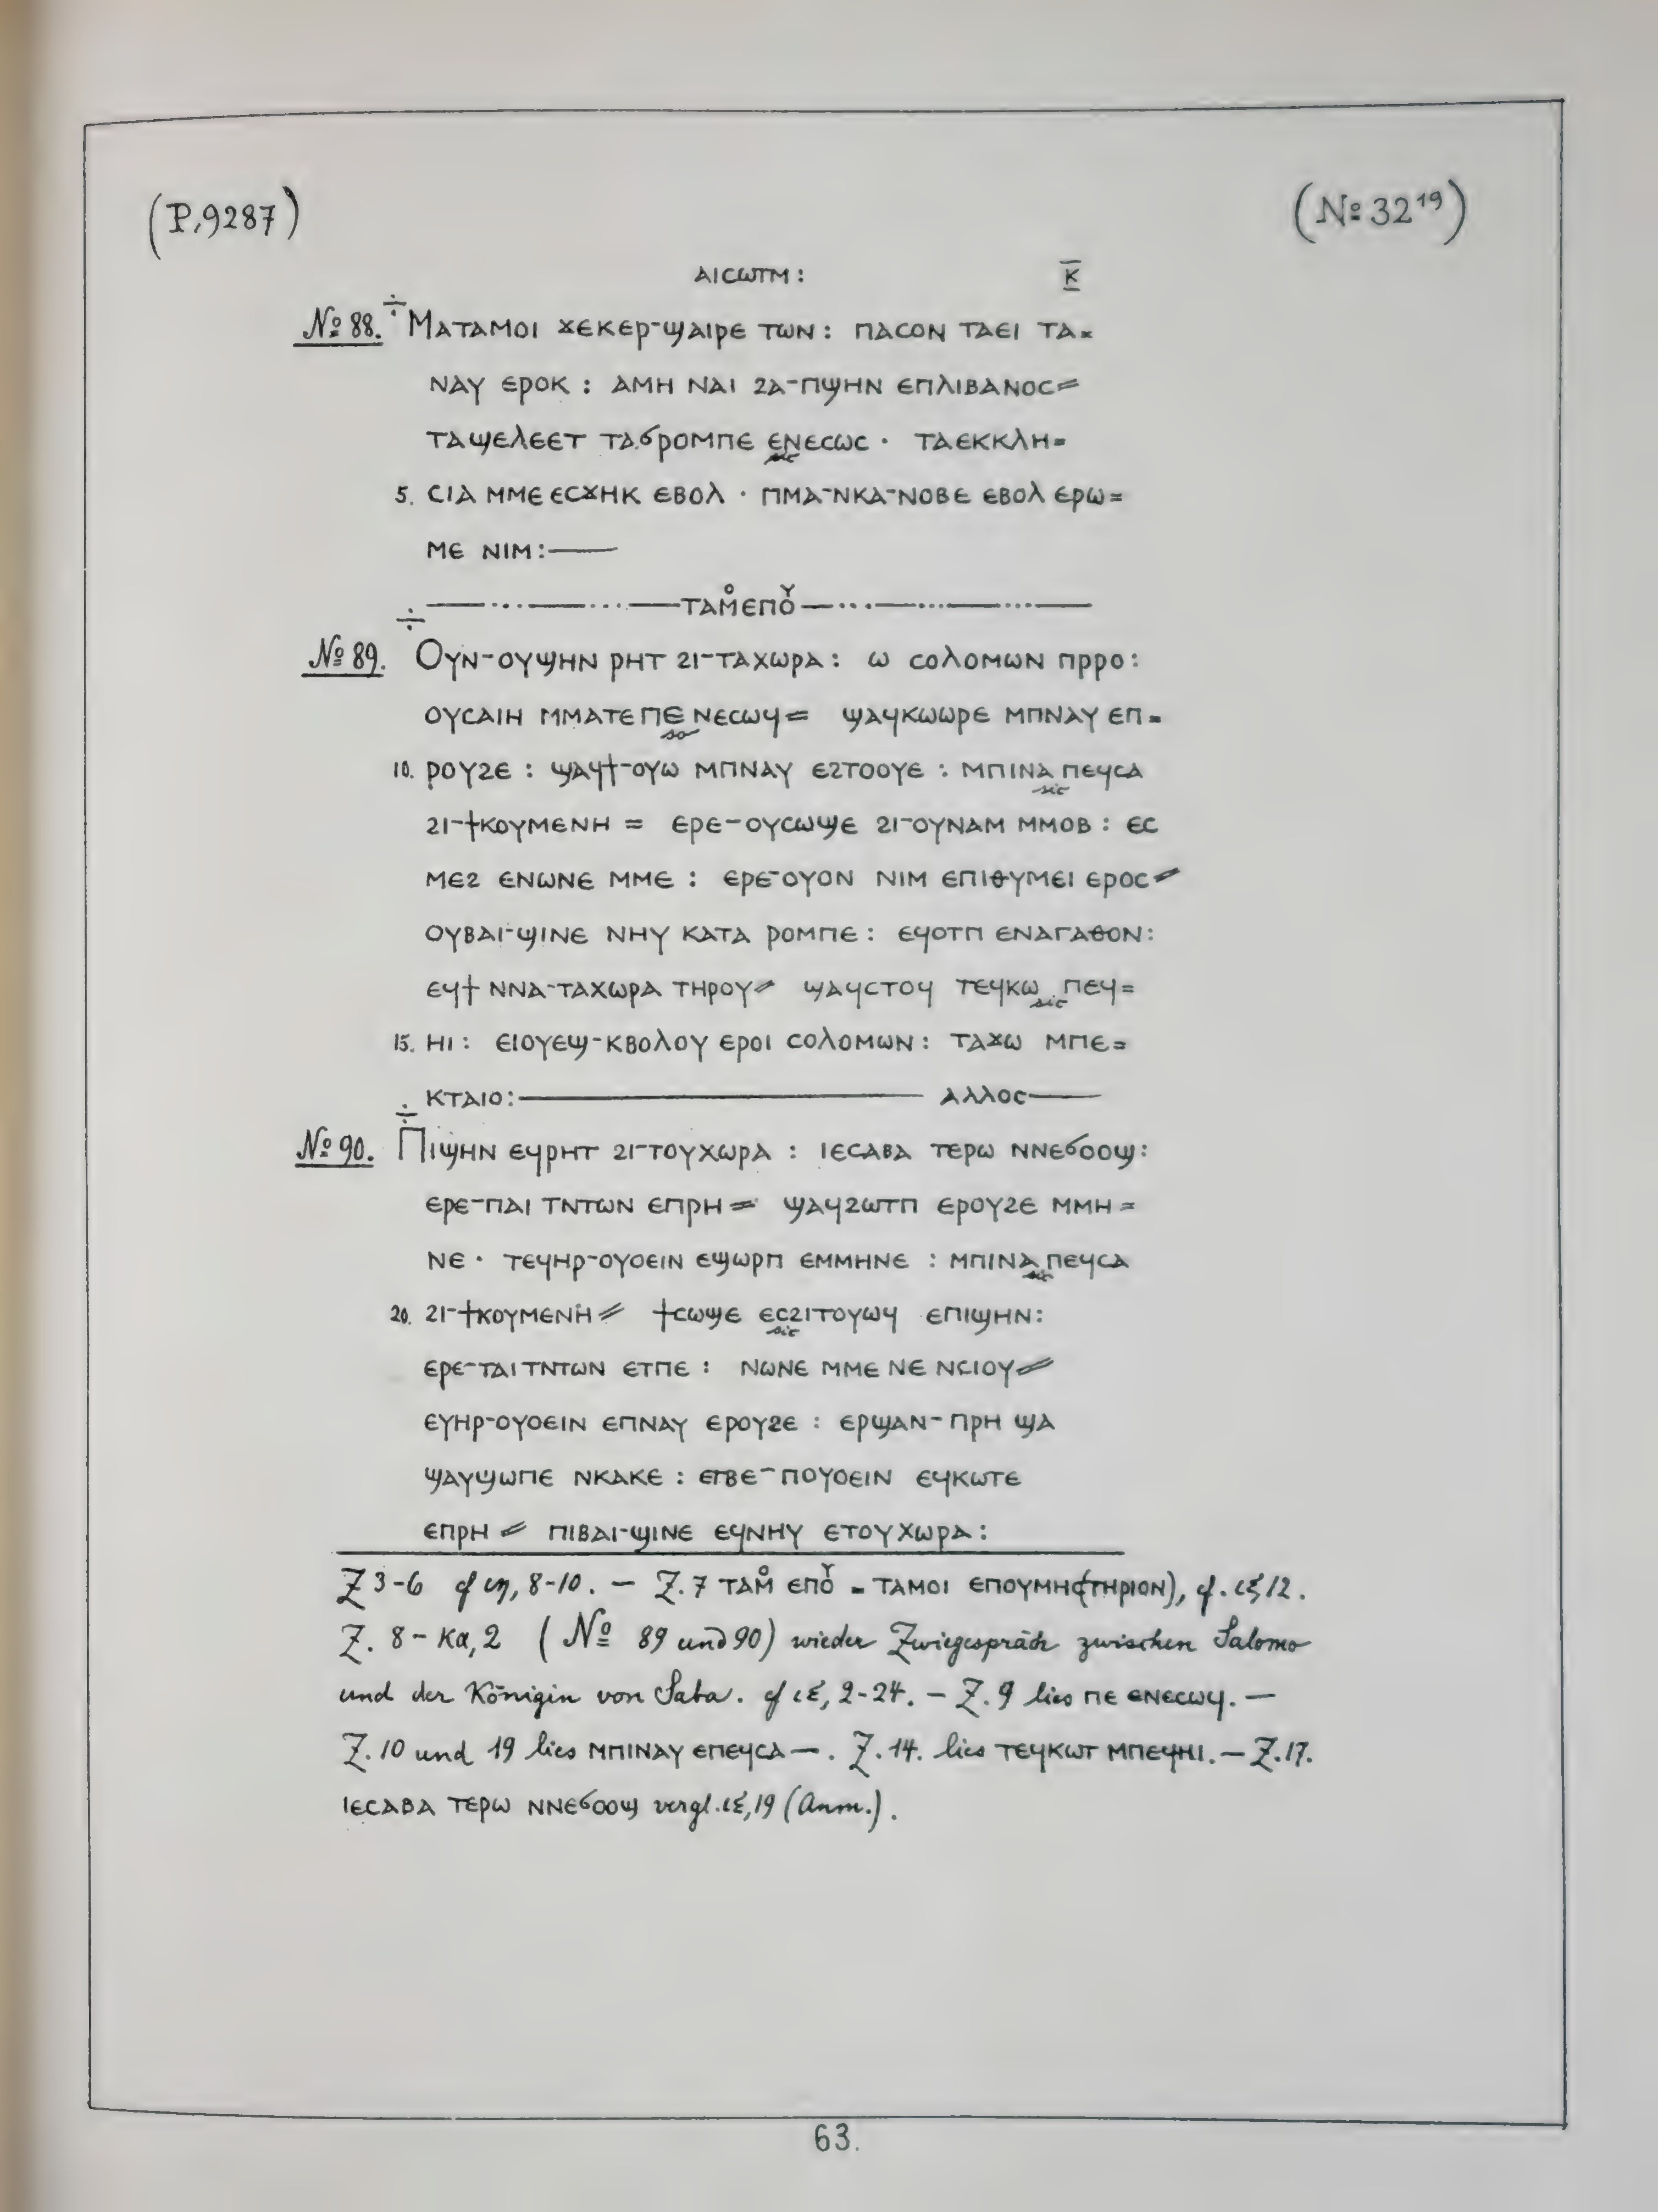 (P. 9287) (№ 32¹⁹)
ⲁⲓⲥⲱⲧⲙ : ⲕ̅
№ 88. ÷ Ⲙⲁⲧⲁⲙⲟⲓ ϫⲉⲕⲉⲣ-ϣⲁⲓⲣⲉ ⲧⲱⲛ : ⲡⲁⲥⲟⲛ ⲧⲁⲉⲓ ⲧⲁ=
ⲛⲁⲩ ⲉⲣⲟⲕ : ⲁⲙⲏ ⲛⲁⲓ ϩⲁ-ⲡϣⲏⲛ ⲉⲡⲗⲓⲃⲁⲛⲟⲥ=
ⲧⲁϣⲉⲗⲉⲉⲧ ⲧⲁϭⲣⲟⲙⲡⲉ ⲉⲛⲉⲥⲱⲥ · ⲧⲁⲉⲕⲕⲗⲏ=
sic
5. ⲥⲓⲁ ⲙⲙⲉ ⲉⲥϫⲏⲕ ⲉⲃⲟⲗ · ⲡⲙⲁ-ⲛⲕⲁ-ⲛⲟⲃⲉ ⲉⲃⲟⲗ ⲉⲣⲱ=
ⲙⲉ ⲛⲓⲙ :——
÷ ——···——···——ⲧⲁⲙ̊ⲉⲡⲟⲩ——···——···——···——
№ 89. Ⲟⲩⲛ-ⲟⲩϣⲏⲛ ⲣⲏⲧ ϩⲓ-ⲧⲁⲭⲱⲣⲁ : ⲱ ⲥⲟⲗⲟⲙⲱⲛ ⲡⲣⲣⲟ :
ⲟⲩⲥⲁⲓⲏ ⲙⲙⲁⲧⲉ ⲡⲉ ⲛⲉⲥⲱϥ= ϣⲁϥⲕⲱⲱⲣⲉ ⲙⲡⲛⲁⲩ ⲉⲡ=
so
10. ⲣⲟⲩϩⲉ : ϣⲁϥϯ-ⲟⲩⲱ ⲙⲡⲛⲁⲩ ⲉϩⲧⲟⲟⲩⲉ : ⲙⲡⲓⲛⲁ ⲡⲉϥⲥⲁ
sic
ϩⲓ-ϯⲕⲟⲩⲙⲉⲛⲏ = ⲉⲣⲉ-ⲟⲩⲥⲱϣⲉ ϩⲓ-ⲟⲩⲛⲁⲙ ⲙⲙⲟⲃ : ⲉⲥ
ⲙⲉϩ ⲉⲛⲱⲛⲉ ⲙⲙⲉ : ⲉⲣⲉ-ⲟⲩⲟⲛ ⲛⲓⲙ ⲉⲡⲓⲑⲩⲙⲉⲓ ⲉⲣⲟⲥ=
ⲟⲩⲃⲁⲓ-ϣⲓⲛⲉ ⲛⲏⲩ ⲕⲁⲧⲁ ⲣⲟⲙⲡⲉ : ⲉϥⲟⲧⲡ ⲉⲛⲁⲅⲁⲑⲟⲛ :
ⲉϥϯ ⲛⲛⲁ-ⲧⲁⲭⲱⲣⲁ ⲧⲏⲣⲟⲩ= ϣⲁϥⲥⲧⲟϥ ⲧⲉϥⲕⲱ ⲡⲉϥ=
sic
15. ⲏⲓ : ⲉⲓⲟⲩⲉϣ-ⲕⲃⲟⲗⲟⲩ ⲉⲣⲟⲓ ⲥⲟⲗⲟⲙⲱⲛ : ⲧⲁϫⲱ ⲙⲡⲉ=
ⲕⲧⲁⲓⲟ :———— ⲁⲗⲗⲟⲥ——
№ 90. ÷ Ⲡⲓϣⲏⲛ ⲉϥⲣⲏⲧ ϩⲓ-ⲧⲟⲩⲭⲱⲣⲁ : ⲓⲉⲥⲁⲃⲁ ⲧⲉⲣⲱ ⲛⲛⲉϭⲟⲟϣ :
ⲉⲣⲉ-ⲡⲁⲓ ⲧⲛⲧⲱⲛ ⲉⲡⲣⲏ = ϣⲁϥϩⲱⲧⲡ ⲉⲣⲟⲩϩⲉ ⲙⲙⲏ=
ⲛⲉ · ⲧⲉϥⲏⲣ-ⲟⲩⲟⲉⲓⲛ ⲉϣⲱⲣⲡ ⲉⲙⲙⲏⲛⲉ : ⲙⲡⲓⲛⲁ ⲡⲉϥⲥⲁ
sic
20. ϩⲓ-ϯⲕⲟⲩⲙⲉⲛⲏ= ϯⲥⲱϣⲉ ⲉⲥϩⲓⲧⲟⲩⲱϥ ⲉⲡⲓϣⲏⲛ :
sic
ⲉⲣⲉ-ⲧⲁⲓ ⲧⲛⲧⲱⲛ ⲉⲧⲡⲉ : ⲛⲱⲛⲉ ⲙⲙⲉ ⲛⲉ ⲛⲥⲓⲟⲩ=
ⲉⲩⲏⲣ-ⲟⲩⲟⲉⲓⲛ ⲉⲡⲛⲁⲩ ⲉⲣⲟⲩϩⲉ : ⲉⲣϣⲁⲛ-ⲡⲣⲏ ϣⲁ
ϣⲁⲩϣⲱⲡⲉ ⲛⲕⲁⲕⲉ : ⲉⲧⲃⲉ-ⲡⲟⲩⲟⲉⲓⲛ ⲉϥⲕⲱⲧⲉ
ⲉⲡⲣⲏ = ⲡⲓⲃⲁⲓ-ϣⲓⲛⲉ ⲉϥⲛⲏⲩ ⲉⲧⲟⲩⲭⲱⲣⲁ :
Z 3-6 cf ιη, 8-10. — Z. 7 ⲧⲁⲙ̊ ⲉⲡⲟⲩ = ⲧⲁⲙⲟⲓ ⲉⲡⲟⲩⲙⲏ(ⲥⲧⲏⲣⲓⲟⲛ), cf. ιξ, 12.
Z. 8 - κα, 2 (№ 89 und 90) wieder Zwiegespräch zwischen Salomo
und der Königin von Saba. cf ιε, 2-24. — Z. 9 lies ⲡⲉ ⲉⲛⲉⲥⲱϥ. —
Z. 10 und 19 lies ⲙⲡⲓⲛⲁⲩ ⲉⲡⲉϥⲥⲁ —. Z. 14. lies ⲧⲉϥⲕⲱⲧ ⲙⲡⲉϥⲏⲓ. — Z. 17.
ⲓⲉⲥⲁⲃⲁ ⲧⲉⲣⲱ ⲛⲛⲉϭⲟⲟϣ vergl. ιε, 19 (Anm.).
63.